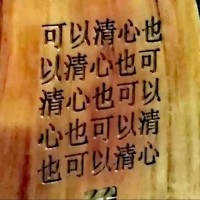 可以清心也
以清心也可
清心也可以
心也可以清
也可以清心